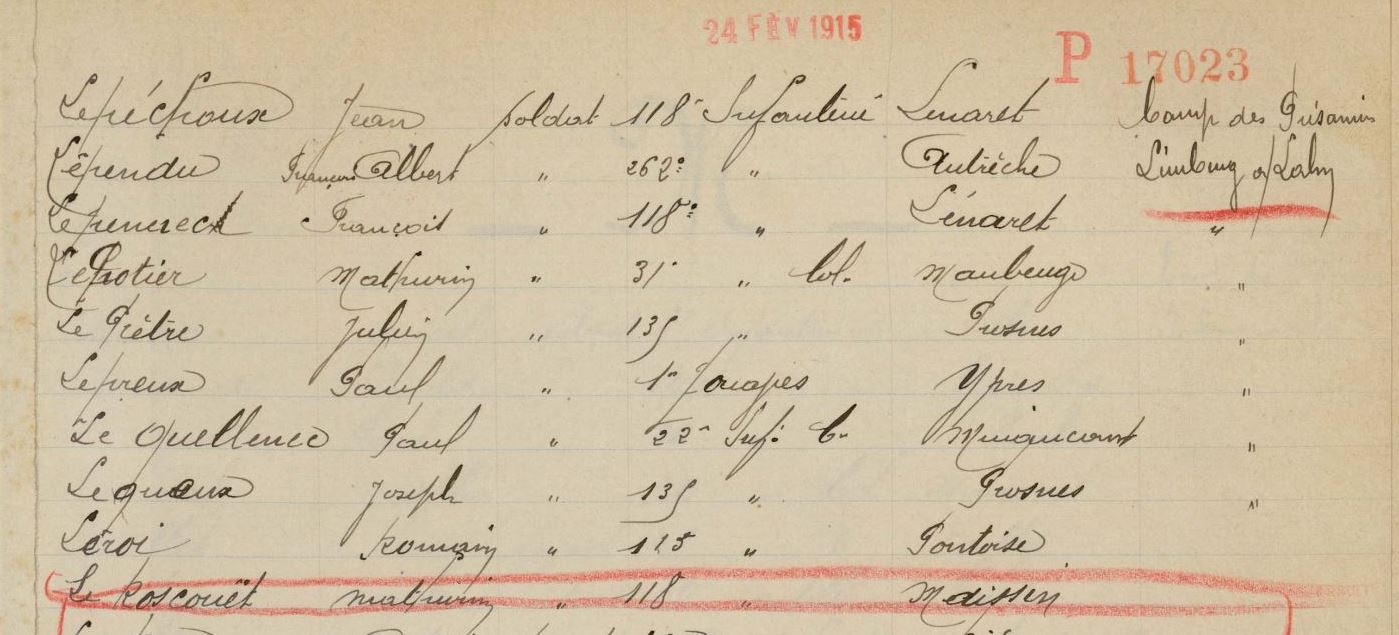 24 FÉV 1915
P 17023
Lepéchoux Jean soldat 118e Infanterie Lenaret Camp des Prisonniers
Lépendu François Albert " 262e " Autrèche Limburg a/Lahn
Lepenneck François " 118e " Lénaret "
Le Potier Mathurin " 31e " Col. Maubeuge "
Le Piètre Julien " 135 " Prosnes "
Lepreux Paul " 1er Zouaves Ypres "
Le Quellenec Paul " 22e Inf. C. "
Lequeux Joseph " 135 " Prosnes "
Léroi Romain " 125 " Pontoise
Le Roscouët Mathurin " 118 " Maissin